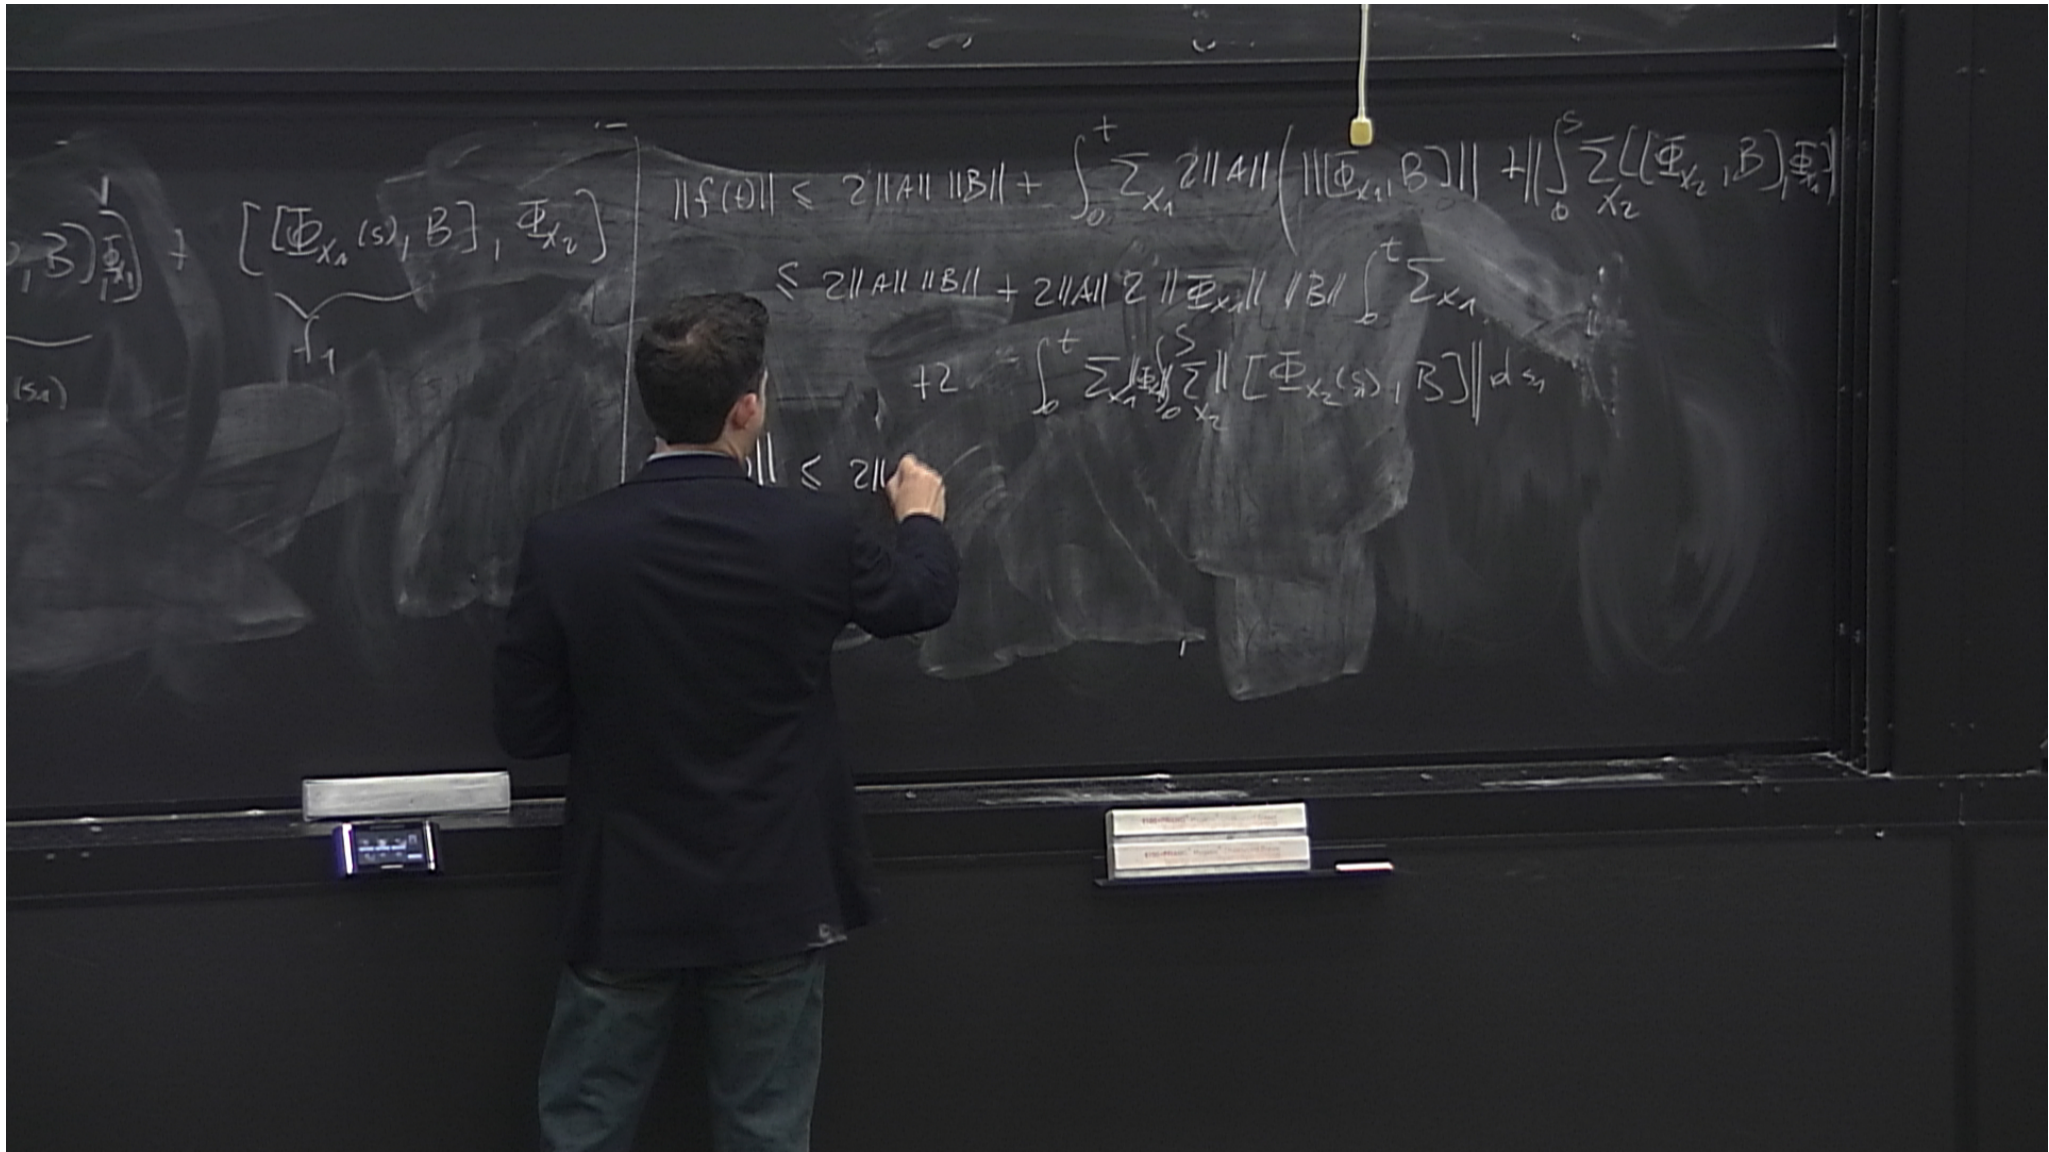 , B), Φ_{x_1}] + [[Φ_{x_1}(s), B], Φ_{x_2}]
f_1
(s_1)
‖f(t)‖ ≤ 2‖A‖ ‖B‖ + ∫_0^t Σ_{x_1} 2‖A‖ ( ‖[Φ_{x_1}, B]‖ + ‖∫_0^s Σ_{x_2} [[Φ_{x_2}, B], Φ_{x_1}]
≤ 2‖A‖ ‖B‖ + 2‖A‖ 2 ‖Φ_{x_1}‖ ‖B‖ ∫_0^t Σ_{x_1}
+2 ∫_0^t Σ_{x_1} ‖Φ_{x_1}‖ ∫_0^s Σ_{x_2} ‖[Φ_{x_2}(s_1), B]‖ ds_1
‖ ≤ 2‖